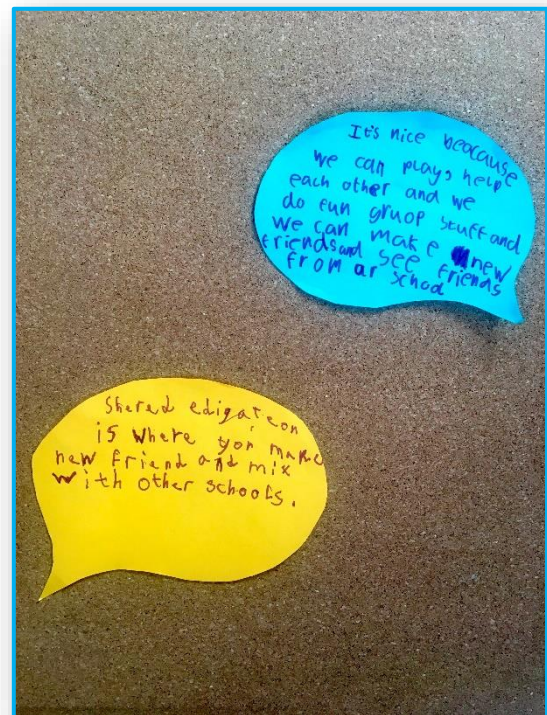 It's nice beacause
we can play, help
each other and we
do fun gruop stuff and
we can make new
friends and see friends
from ar school
Shered edigateon
is where you make
new friend and mix
with other schools.